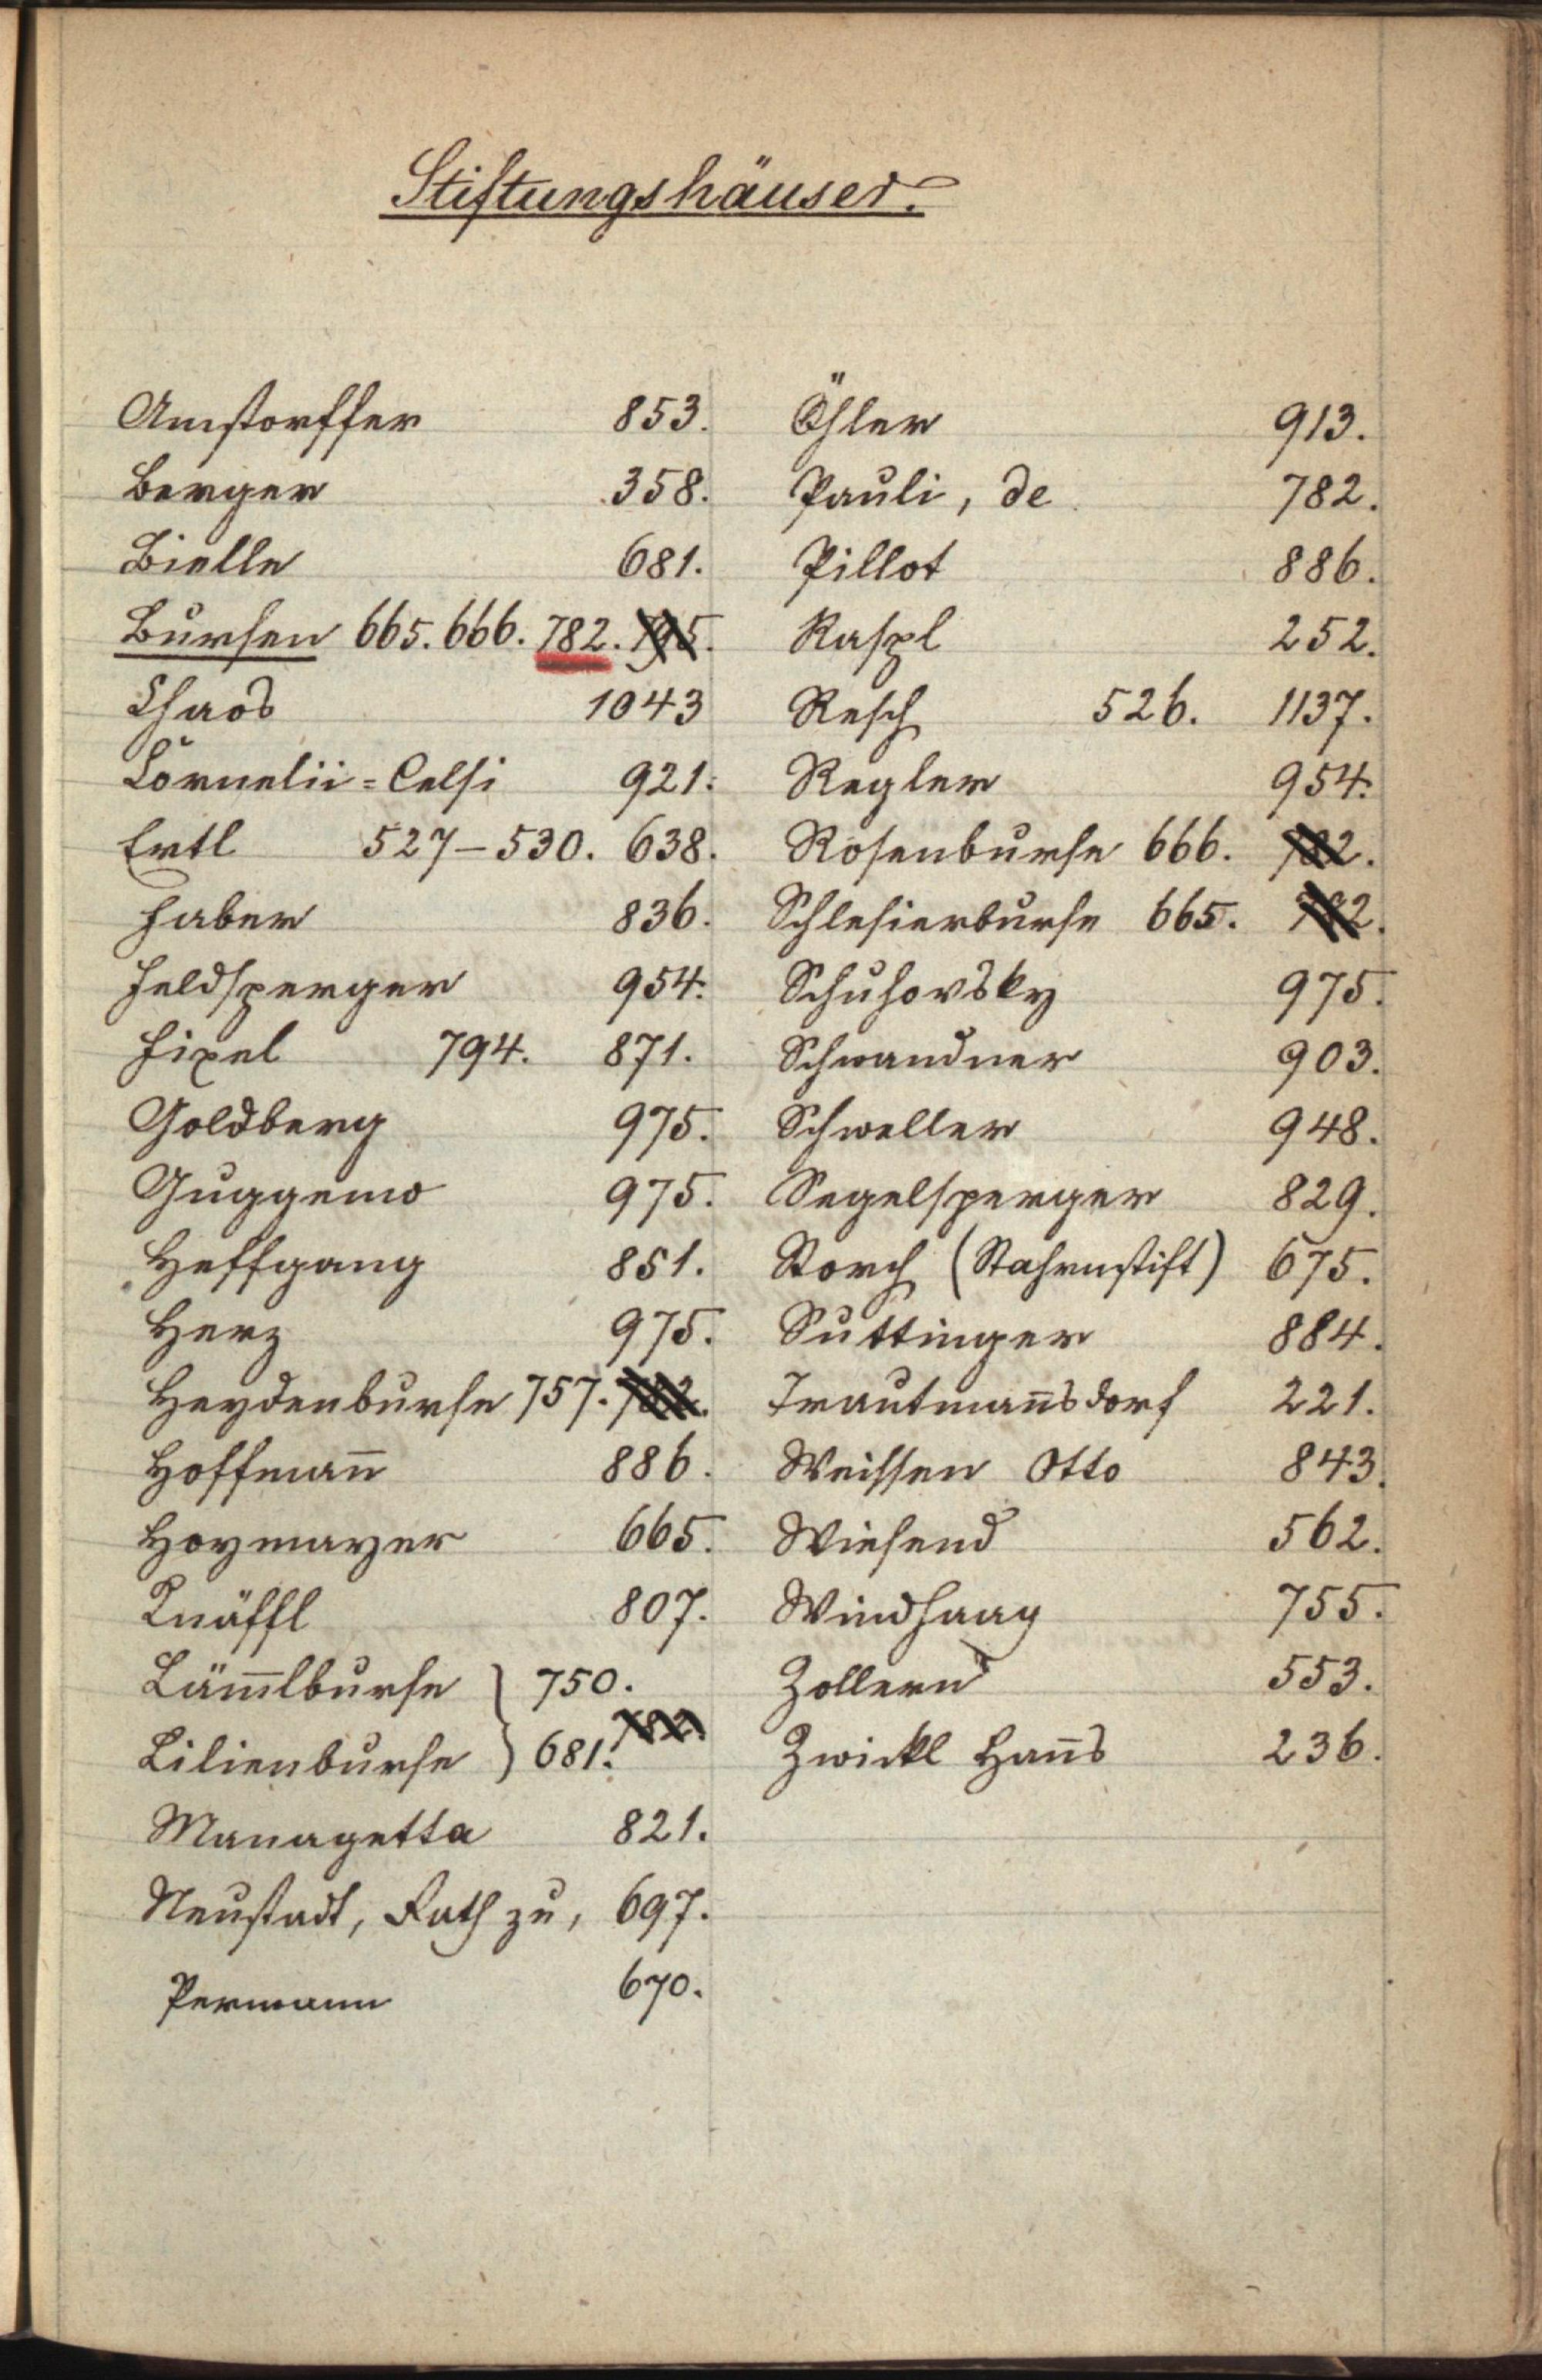 Stiftungshäuser.
Amstorffer 853.
Berger 358.
Bielle 681.
Bursen 665. 666. 782. 795.
Chaos 1043
Cornelii=Celsi 921.
Ertl 527–530. 638.
Faber 836.
Feldsperger 954.
Fixel 794. 871.
Goldberg 975.
Guggemo 975.
Heffgang 851.
Herz 975.
Heydenburse 757. 782.
Hoffman̅ 886.
Hoymayer 665.
Knäffl 807.
Läm̅lburse } 750.
782.
Lilienburse } 681.
Managetta 821.
Neustadt, Rath zu, 697.
Permann 670.
Öhler 913.
Pauli, de 782.
Pillot 886.
Raspl 252.
Resch 526. 1137.
Regler 954.
Rosenburse 666. 782.
Schlesierburse 665. 782.
Schuhovsky 975.
Schwandner 903.
Schweller 948.
Segelsperger 829.
Storch (Stahrnstift) 675.
Suttinger 884.
Trautman̅sdorf 221.
Weissen Otto 843.
Wiesend 562.
Windhaag 755.
Zollern 553.
Zwickl Han̅s 236.